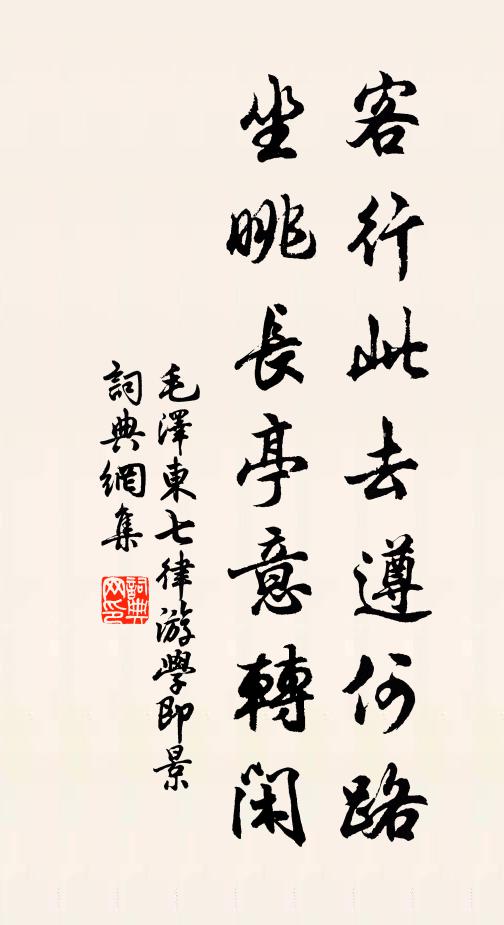 客行此去遵何路
坐眺長亭意轉閑
毛澤東七律游學即景
詞典網集
詞典
网印